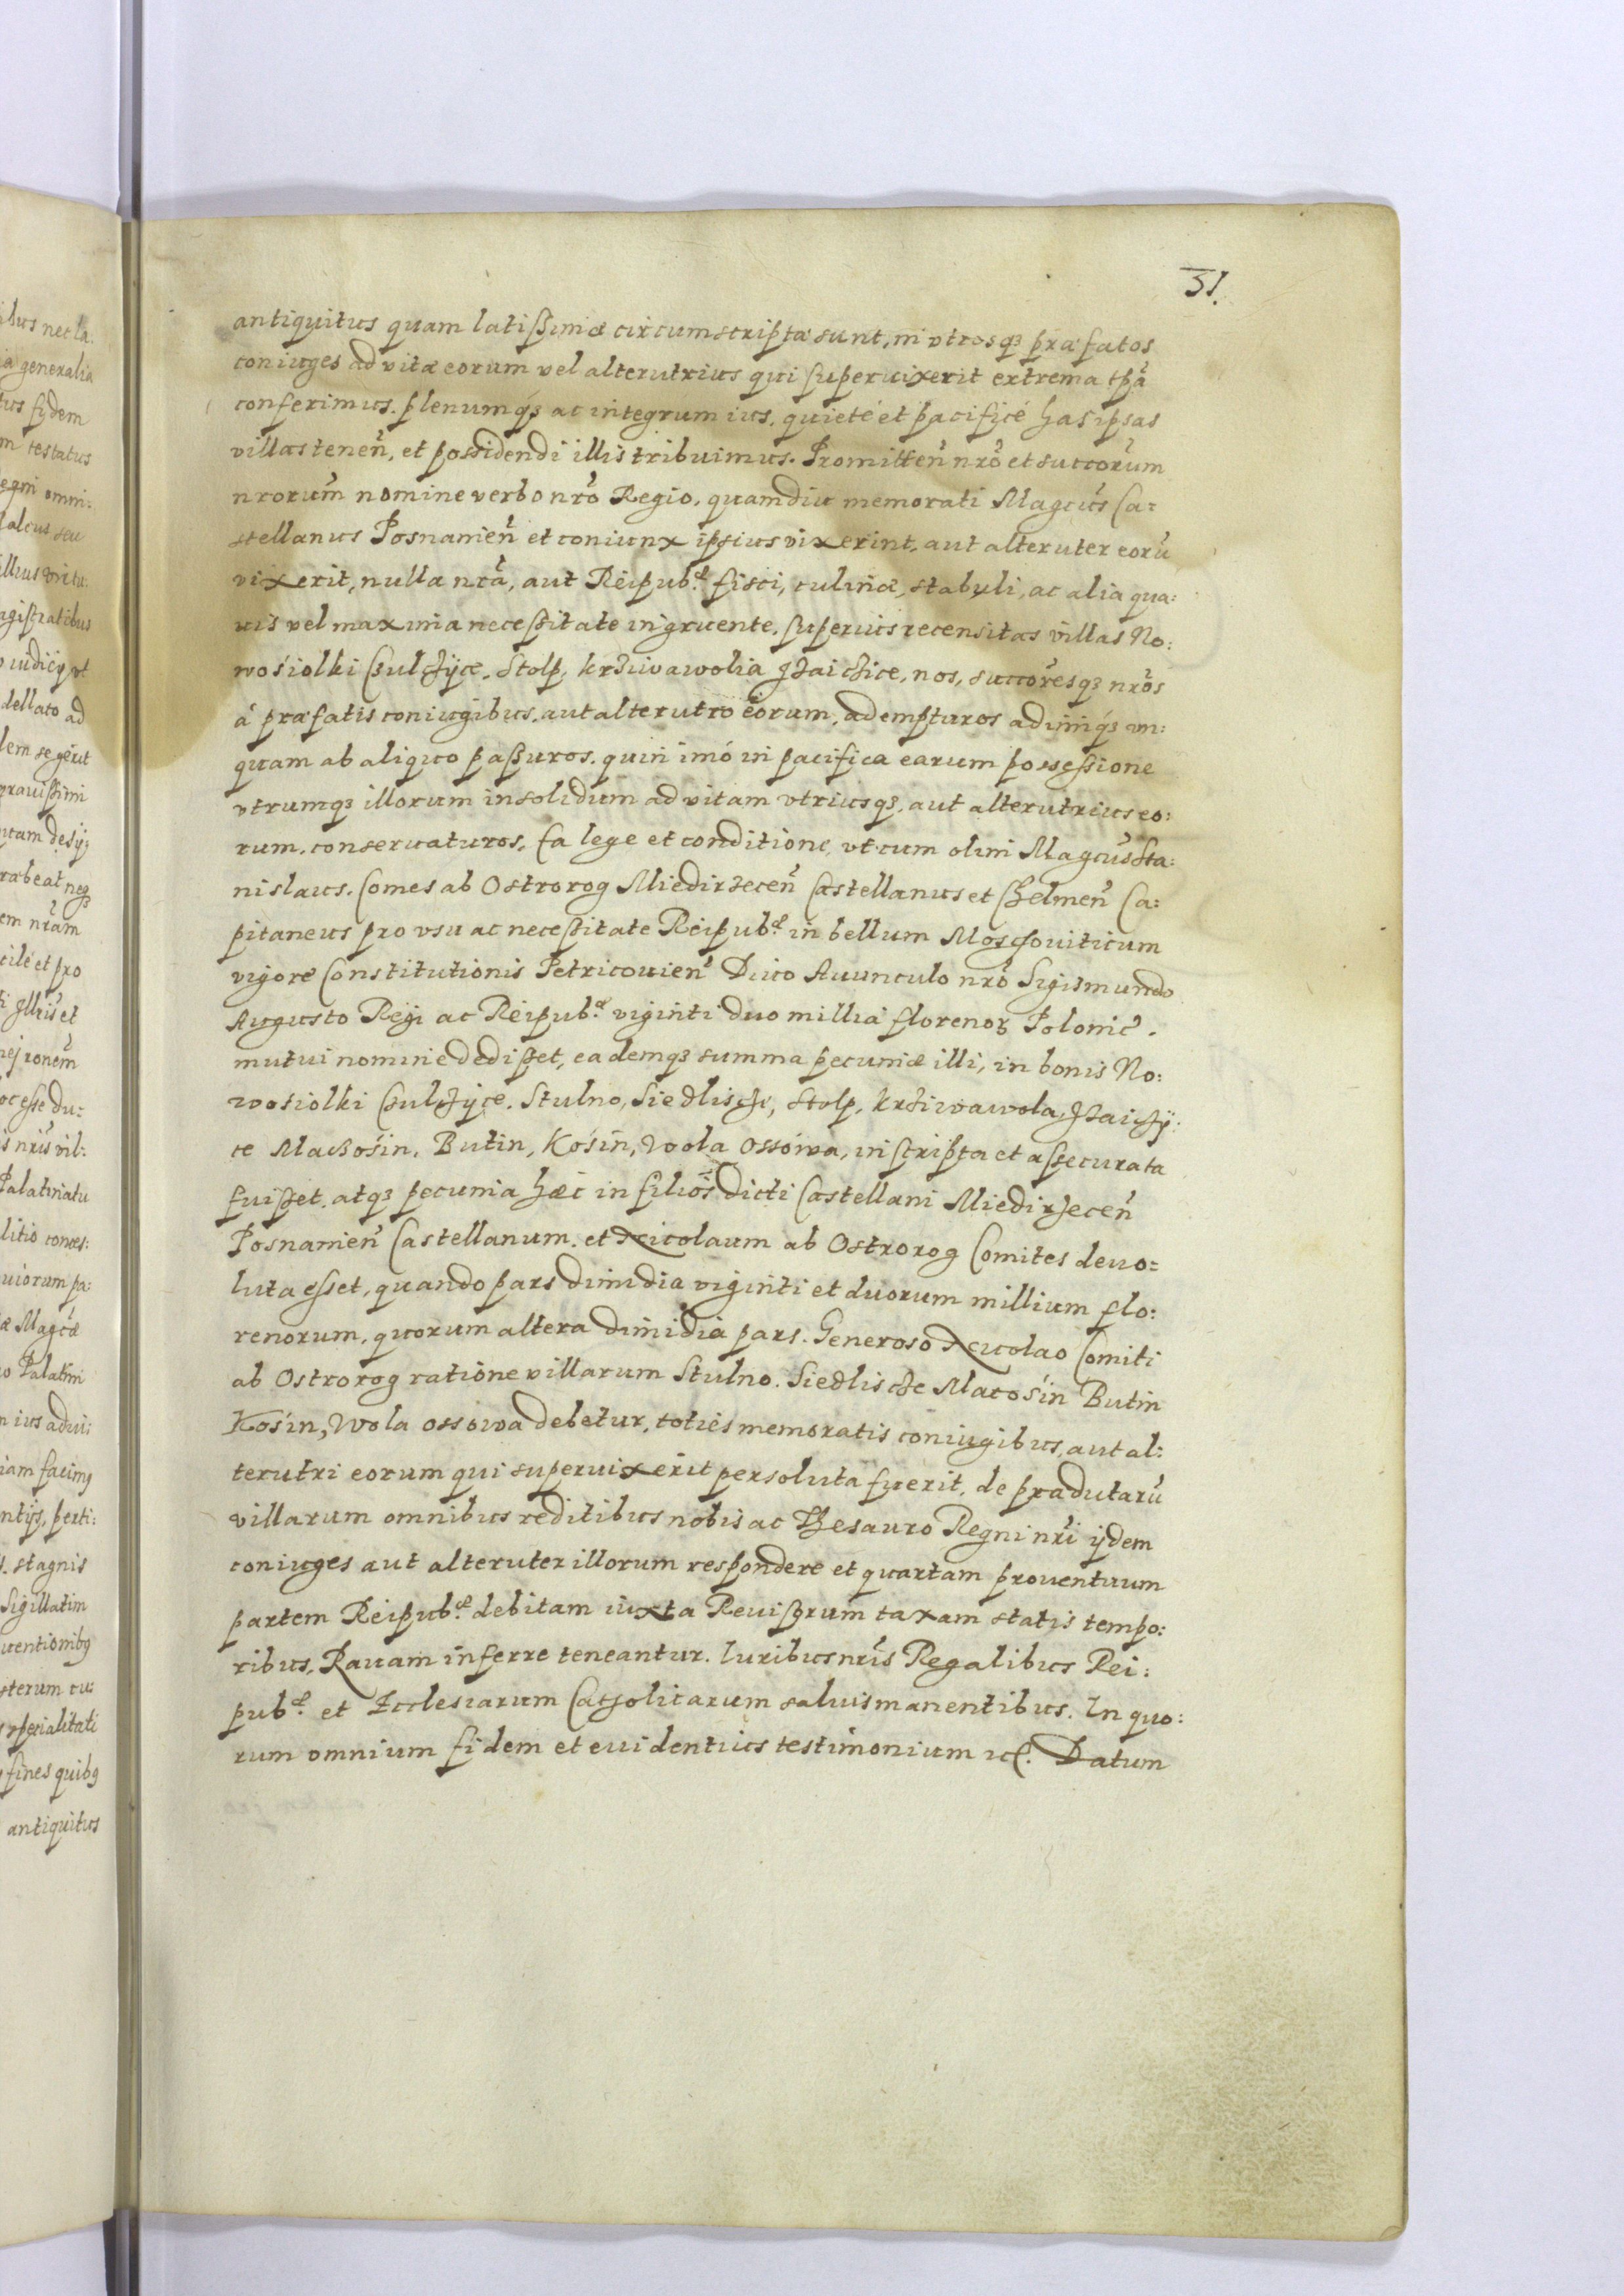 31.
antiquitus quam latissimæ circumscriptæ sunt, in vtrosq3 præfatos
coniuges ad vitæ eorum vel alterutrius qui superuixerit extrema tpã
conferimus. plenumq3 ac integrum ius, quietè et pacificè has ipsas
villas tenen̄, et possidendi illis tribuimus. Promitten̄ nrõ et succorum̃
nrorum̃ nomine verbo nrõ Regio, quamdiu memorati Magcus̃ Ca:
stellanus Posnanien̄ et coniunx ipsius vixerint, aut alteruter eorũ
vixerit, nulla nrã, aut Reipub.æ fisci, culinæ, stabuli, ac alia qua:
uis vel maxima necessitate ingruente, superius recensitas villas No:
wosiolki Czulczÿce, Stolp, krziwawolia Hzaichice, nos, succoresq3 nrõs
à præfatis coniugibus, aut alterutro eorum, adempturos adimiq3 vn:
quam ab aliquo passuros. quin imò in pacifica earum possessione
vtrumq3 illorum insolidum ad vitam vtriusq3, aut alterutrius eo:
rum, conseruaturos. Ea lege et conditione, vt cum olim Magcus̃ Sta:
nislaus, Comes ab Ostrorog Miedirzecen̄ Castellanus et Chelmen̄ Ca:
pitaneus pro vsu ac necessitate Reipub.æ in bellum Moschouiticum
vigore Constitutionis Petricouien̄ Diuo Auunculo nrõ Sigismundo
Augusto Regi ac Reipub.æ viginti duo millia florenor3 Polonic̃.
mutui nomine dedisset, eademq3 summa pecuniæ illi, in bonis No:
wosiolki Czulczÿce, Stulno, Siedlische, Stolp, krziwawola, Hzaichÿ:
ce Maczosin, Butin, Kosin, Wola Ossowa, inscripta et assecurata
fuisset, atq3 pecunia hæc in filios dicti Castellani Miedirzecen̄
Posnanien̄ Castellanum, et Nicolaum ab Ostrorog Comites deuo=
luta esset, quando pars dimidia viginti et duorum millium flo:
renorum, quorum altera dimidia pars, Generoso Nicolao Comiti
ab Ostrorog ratione villarum Stulno, Siedlische Macosin Butin
Kosin, Wola ossowa debetur, toties memoratis coniugibus, aut al:
terutri eorum qui superuixerit persoluta fuerit, de prædictarũ
villarum omnibus reditibus nobis ac Thesauro Regni nrĩ ijdem
coniuges aut alteruter illorum respondere et quartam prouentuum
partem Reipub.æ debitam iuxta Reuisorum taxam statis tempo:
ribus, Rauam inferre teneantur. Iuribus nrĩs Regalibus Rei:
pub.æ et Ecclesiarum Catholicarum saluis manentibus. In quo:
rum omnium fidem et euidentius testimonium &c. Datum